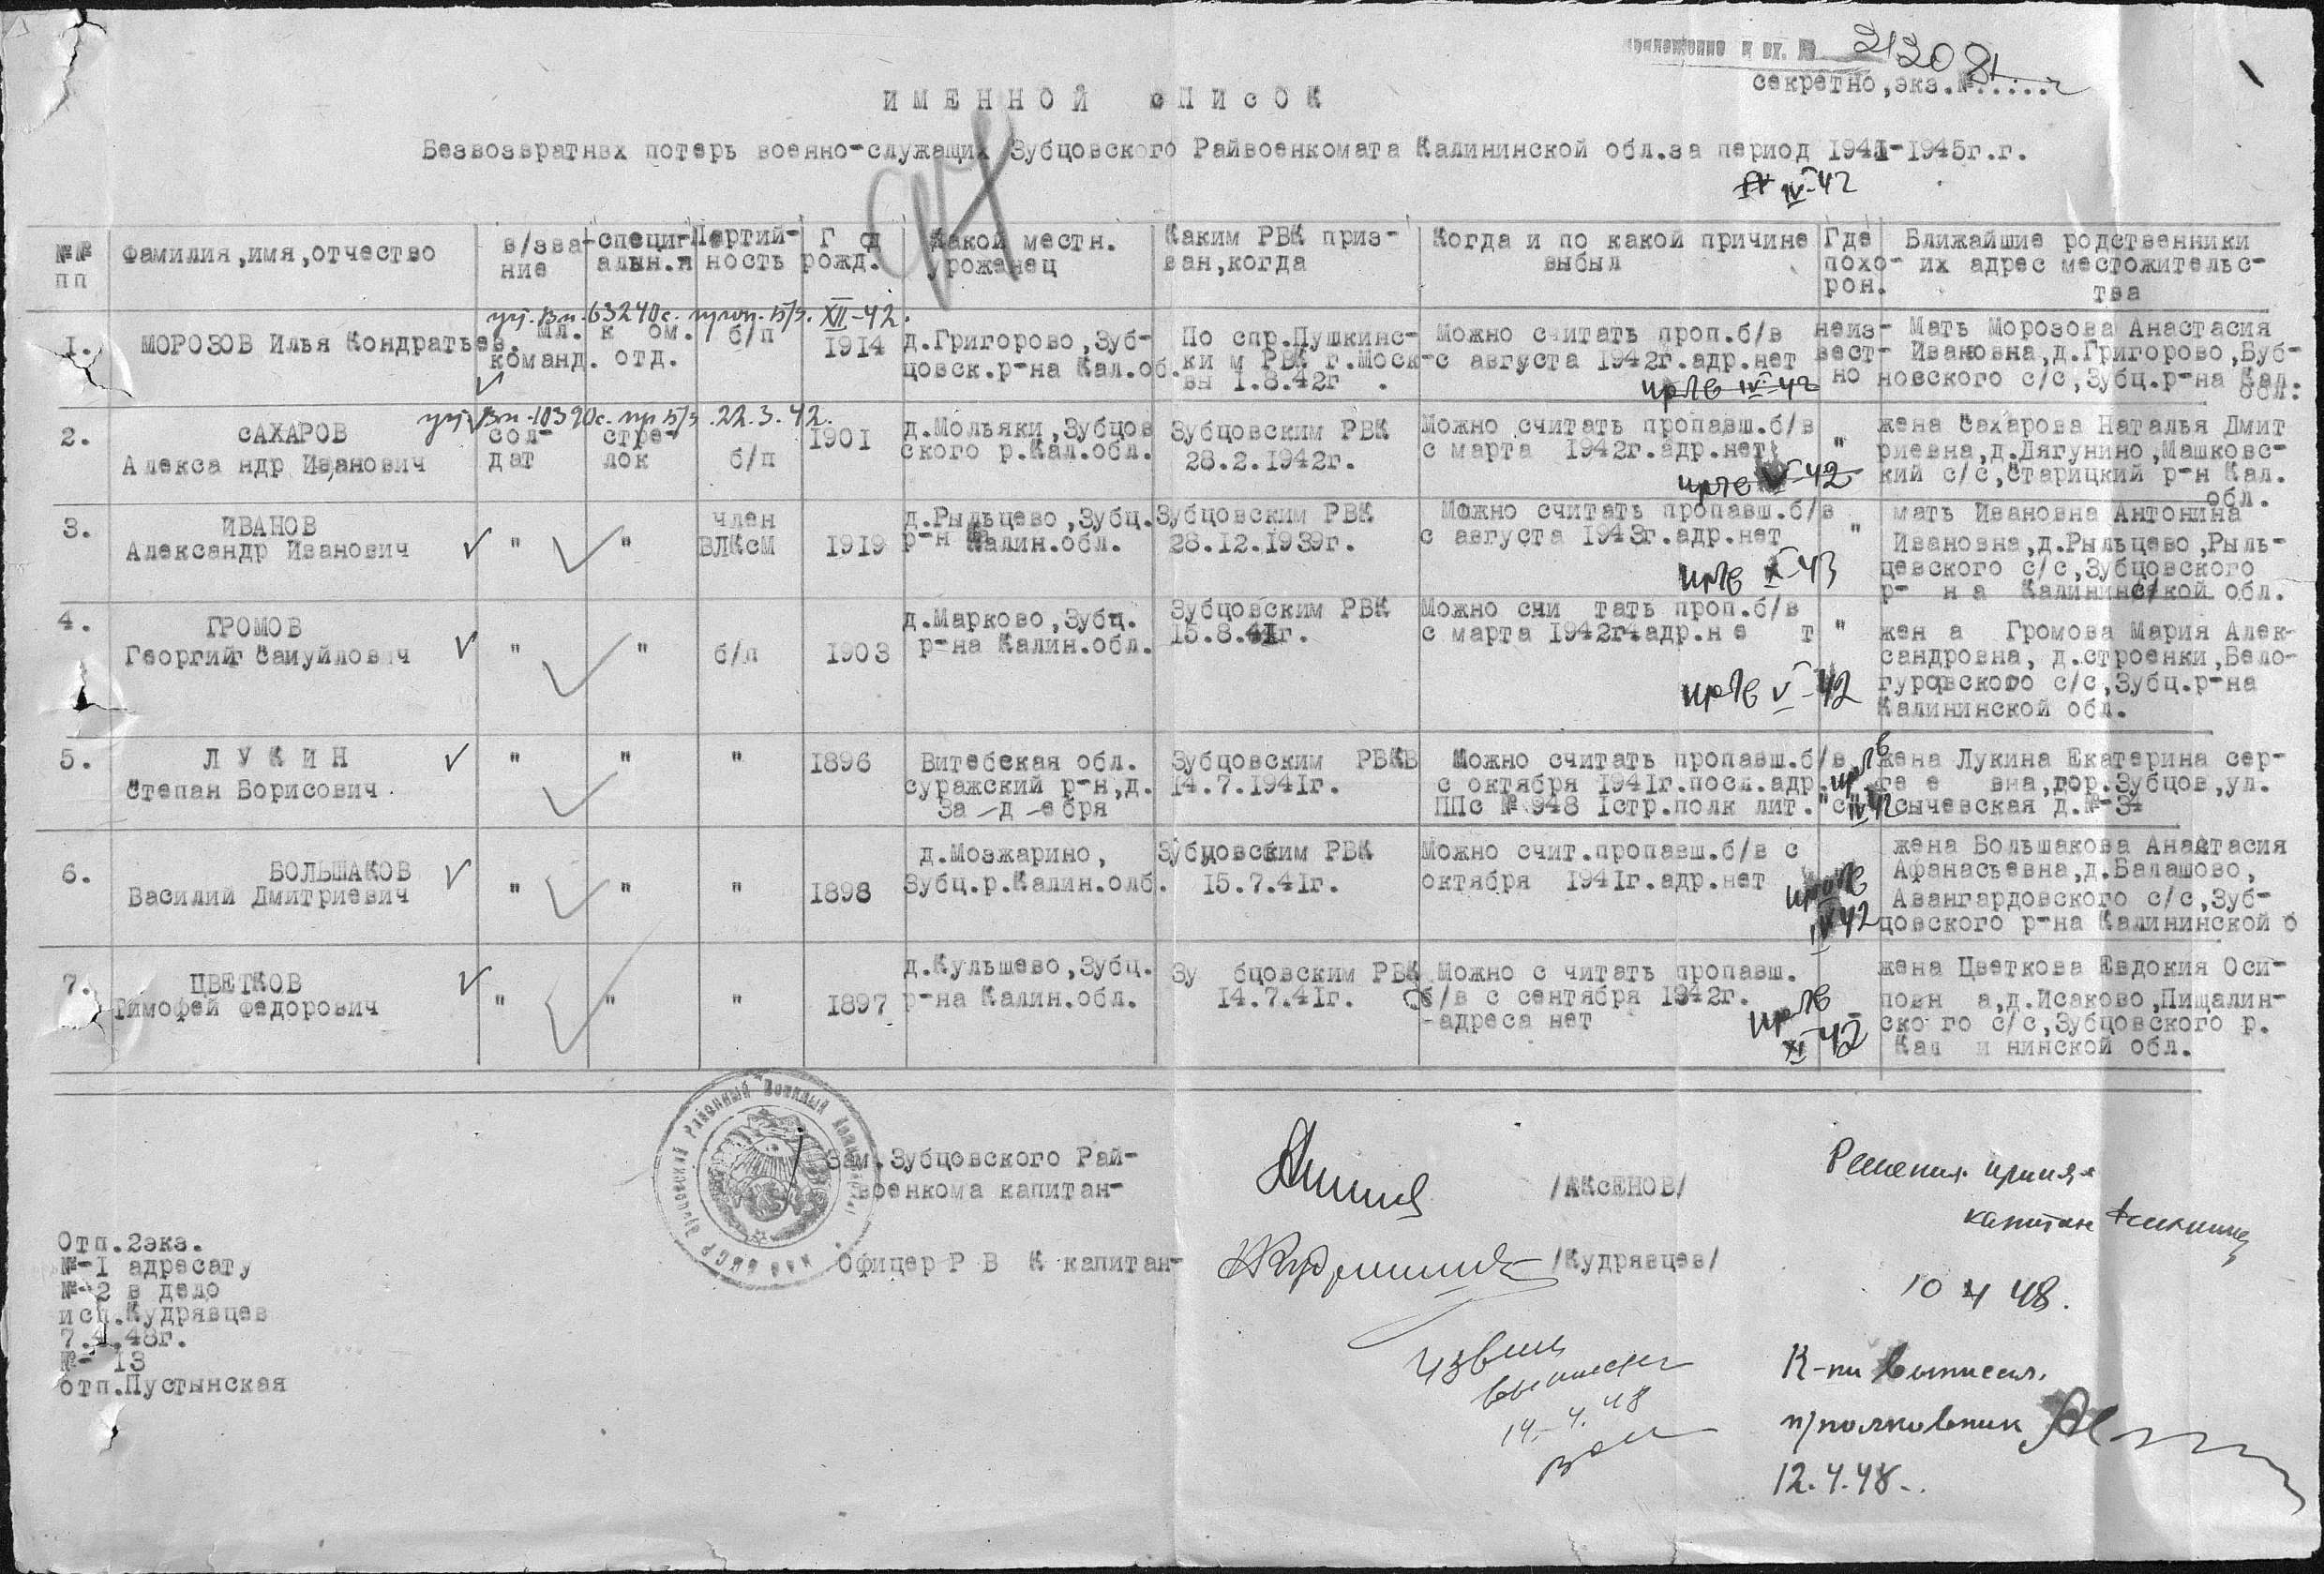 приложение к вх. № 21208
секретно,экз.№.....
ИМЕННОЙ сПИсОК
Безвозвратнвх потерь военно-служащих Зубцовского Райвоенкомата Калининской обл.за период 1941-1945г.г.
IV-42
№№ пп
Фамилия,имя,отчество
в/зва-
ние
специ-
альн.
Партий-
ность
Г од
рожд.
Какой местн.
уроженец
Каким РВК приз-
ван,когда
Когда и по какой причине
выбыл
Где
похо-
рон.
Ближайшие родственники
их адрес местожительс-
тва
уч. Вп. 63240с. проп. б/в. XII-42.
1.
МОРОЗОВ Илья Кондратьев.
мл. к ом.
команд. отд.
б/п
1914
д.Григорово,Зуб-
цовск.р-на Кал.об.
По спр.Пушкинс-
ки м РВК г.Моск-
вн 1.8.42г .
Можно считать проп.б/в
с августа 1942г.адр.нет
неиз-
вест-
но
Мать Морозова Анастасия
Ивановна,д.Григорово,Буб-
новского с/с,Зубц.р-на Кал.
обл.
уч. Вп. 10390с. пр б/в .22.3.42.
2.
сАХАРОВ
Алекса ндр Иванович
сол-
дат
стре-
лок
б/п
1901
д.Мольяки,Зубцов
ского р.Кал.обл.
Зубцовским РВК
28.2.1942г.
Можно считать пропавш.б/в
с марта 1942г.адр.нет
"
жена сахарова Наталья Дмит
риевна,д.Дягунино,Машковс-
кий с/с,старицкий р-н Кал.
обл.
3.
ИВАНОВ
Александр Иванович
"
"
член
ВЛКсМ
1919
д.Рыльцево,Зубц.
р-н Калин.обл.
Зубцовским РВК
28.12.1939г.
Можно считать пропавш.б/в
с августа 1943г.адр.нет
"
X-43
мать Ивановна Антонина
Ивановна,д.Рыльцево,Рыль-
цевского с/с,Зубцовского
р- н а Калининской обл.
4.
ГРОМОВ
Георгий самуйлович
"
"
б/п
1903
д.Марково,Зубц.
р-на Калин.обл.
Зубцовским РВК
15.8.41г.
Можно счи тать проп.б/в
с марта 1942г.адр.н е т
"
V-42
жен а Громова Мария Алек-
сандровна, д.строенки,Бело-
гуровского с/с,Зубц.р-на
Калининской обл.
5.
Л У К И Н
степан Борисович
"
"
"
1896
Витебская обл.
суражский р-н,д.
За -д -ебря
Зубцовским РВКВ
14.7.1941г.
Можно считать пропавш.б/в
с октября 1941г.посл.адр.
ППс № 948 1стр.полк лит."с"
жена Лукина Екатерина сер-
ге е вна,гор.Зубцов,ул.
сычевская д.№-34
6.
БОЛЬШАКОВ
Василий Дмитриевич
"
"
"
1898
д.Мозжарино,
Зубц.р.Калин.олб.
Зубцовским РВК
15.7.41г.
Можно счит.пропавш.б/в с
октября 1941г.адр.нет
IV 42
жена Большакова Анастасия
Афанасьевна,д.Балашово,
Авангардовского с/с,Зуб-
цовского р-на Калининской о
7.
ЦВЕТКОВ
Тимофей Федорович
"
"
"
1897
д.Кульшево,Зубц.
р-на Калин.обл.
Зу бцовским РВК
14.7.41г.
Можно с читать пропавш.
б/в с сентября 1942г.
-адреса нет
XI-42
жена Цветкова Евдокия Оси-
повн а,д.Исаково,Пищалин-
ско го с/с,Зубцовского р.
Кал и нинской обл.
Зам.Зубцовского Рай-
военкома капитан-
/АКсЕНОВ/
Офицер Р В К капитан-
/Кудрявцев/
Отп.2экз.
№-1 адресату
№-2 в дело
исп.Кудрявцев
7.4.48г.
№- 13
отп.Пустынская
Решения принял
капитан
10 4 48.
Извещ
выписал
14.4.48
К-ки выписал.
п/полковник
12.4.48.